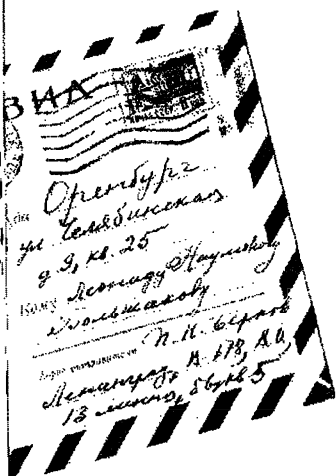 ВИА
Оренбург
ул. Челябинская
д 9, кв. 25
Кому Леониду Наумовичу
Большакову
Адрес отправителя П. Н. Берков
Ленинград, В-178, В.О.
13 линия, 56, кв 5